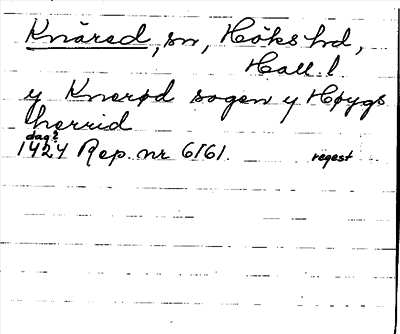 Knäred, sn, Höks hd,
Hall. l.
y Knerød sogen y Høygs
herrid
dag?
1424 Rep. nr 6161. regest